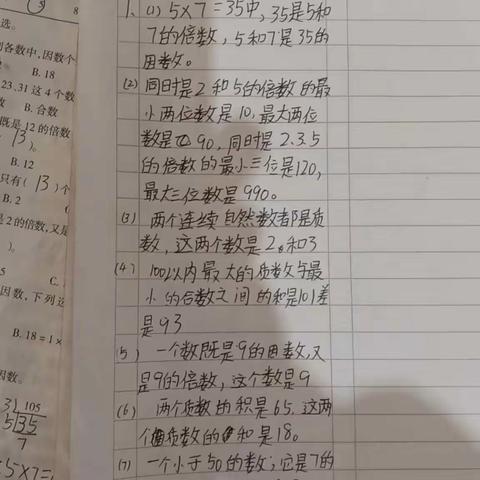 8
选。
各数中,因数个
B. 18
23、31 这 4 个数
B. 合数
既是 12 的倍数
13 )。
B. 12
只有( 13 )个
B. 2
是 2 的倍数,又是
)。
C.
因数,下列这
B. 18 = 1 ×
因数。
3 105
5 35
7
5×7=
1、(1) 5×7=35中,35是5和
7的倍数,5和7是35的
因数。
(2) 同时是2和5的倍数的最
小两位数是10,最大两位
数是90,同时是2.3.5
的倍数的最小三位是120,
最大三位数是990。
(3) 两个连续自然数都是质
数,这两个数是2和3
(4) 100以内最大的质数与最
小的合数之间的和是101差
是93
(5) 一个数既是9的因数,又
是9的倍数,这个数是9
(6) 两个质数的积是65.这两
个质数的和是18。
(7) 一个小于50的数,它是7的